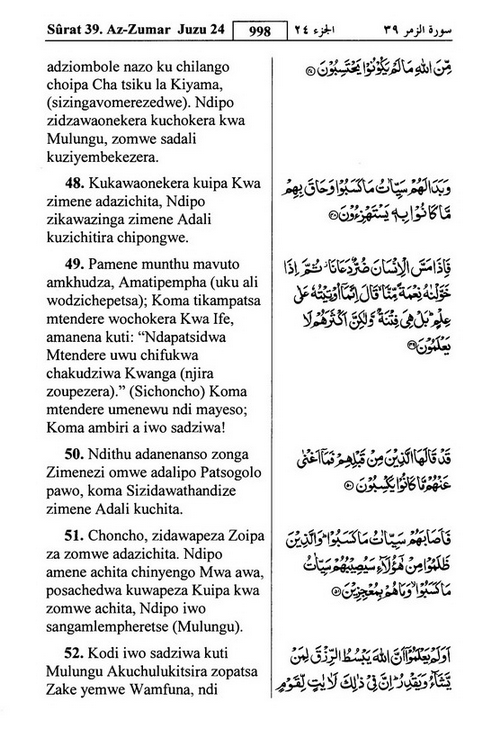 Sûrat 39. Az-Zumar Juzu 24 998 الجزء ٢٤ سورة الزمر ٣٩
adziombole nazo ku chilango
choipa Cha tsiku la Kiyama,
(sizingavomerezedwe). Ndipo
zidzawaonekera kuchokera kwa
Mulungu, zomwe sadali
kuziyembekezera.
48. Kukawaonekera kuipa Kwa
zimene adazichita, Ndipo
zikawazinga zimene Adali
kuzichitira chipongwe.
49. Pamene munthu mavuto
amkhudza, Amatipempha (uku ali
wodzichepetsa); Koma tikampatsa
mtendere wochokera Kwa Ife,
amanena kuti: “Ndapatsidwa
Mtendere uwu chifukwa
chakudziwa Kwanga (njira
zoupezera).” (Sichoncho) Koma
mtendere umenewu ndi mayeso;
Koma ambiri a iwo sadziwa!
50. Ndithu adanenanso zonga
Zimenezi omwe adalipo Patsogolo
pawo, koma Sizidawathandize
zimene Adali kuchita.
51. Choncho, zidawapeza Zoipa
za zomwe adazichita. Ndipo
amene achita chinyengo Mwa awa,
posachedwa kuwapeza Kuipa kwa
zomwe achita, Ndipo iwo
sangamlempheretse (Mulungu).
52. Kodi iwo sadziwa kuti
Mulungu Akuchulukitsira zopatsa
Zake yemwe Wamfuna, ndi
مِّنَ اللهِ مَا لَمْ يَكُوْنُوْا يَحْتَسِبُوْنَ
وَبَدَا لَهُمْ سَيِّاٰتُ مَا كَسَبُوْا وَحَاقَ بِهِمْ
مَّا كَانُوْا بِهٖ يَسْتَهْزِءُوْنَ
فَاِذَا مَسَّ الْاِنْسَانَ ضُرٌّ دَعَانَا ثُمَّ اِذَا
خَوَّلْنٰهُ نِعْمَةً مِّنَّا قَالَ اِنَّمَآ اُوْتِيْتُهٗ عَلٰى
عِلْمٍ بَلْ هِيَ فِتْنَةٌ وَّلٰكِنَّ اَكْثَرَهُمْ لَا
يَعْلَمُوْنَ
قَدْ قَالَهَا الَّذِيْنَ مِنْ قَبْلِهِمْ فَمَآ اَغْنٰى
عَنْهُمْ مَّا كَانُوْا يَكْسِبُوْنَ
فَاَصَابَهُمْ سَيِّاٰتُ مَا كَسَبُوْا وَالَّذِيْنَ
ظَلَمُوْا مِنْ هٰٓؤُلَآءِ سَيُصِيْبُهُمْ سَيِّاٰتُ
مَا كَسَبُوْا وَمَا هُمْ بِمُعْجِزِيْنَ
اَوَلَمْ يَعْلَمُوْٓا اَنَّ اللهَ يَبْسُطُ الرِّزْقَ لِمَنْ
يَّشَآءُ وَيَقْدِرُ اِنَّ فِيْ ذٰلِكَ لَاٰيٰتٍ لِّقَوْمٍ